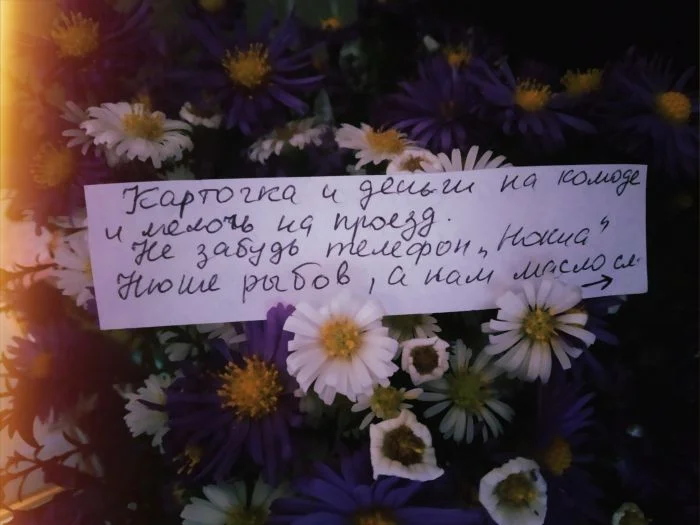 Карточка и деньги на комоде
и мелочь на проезд.
Не забудь телефон „Нокиа"
Нюше рыбов, а нам масло сл.
→